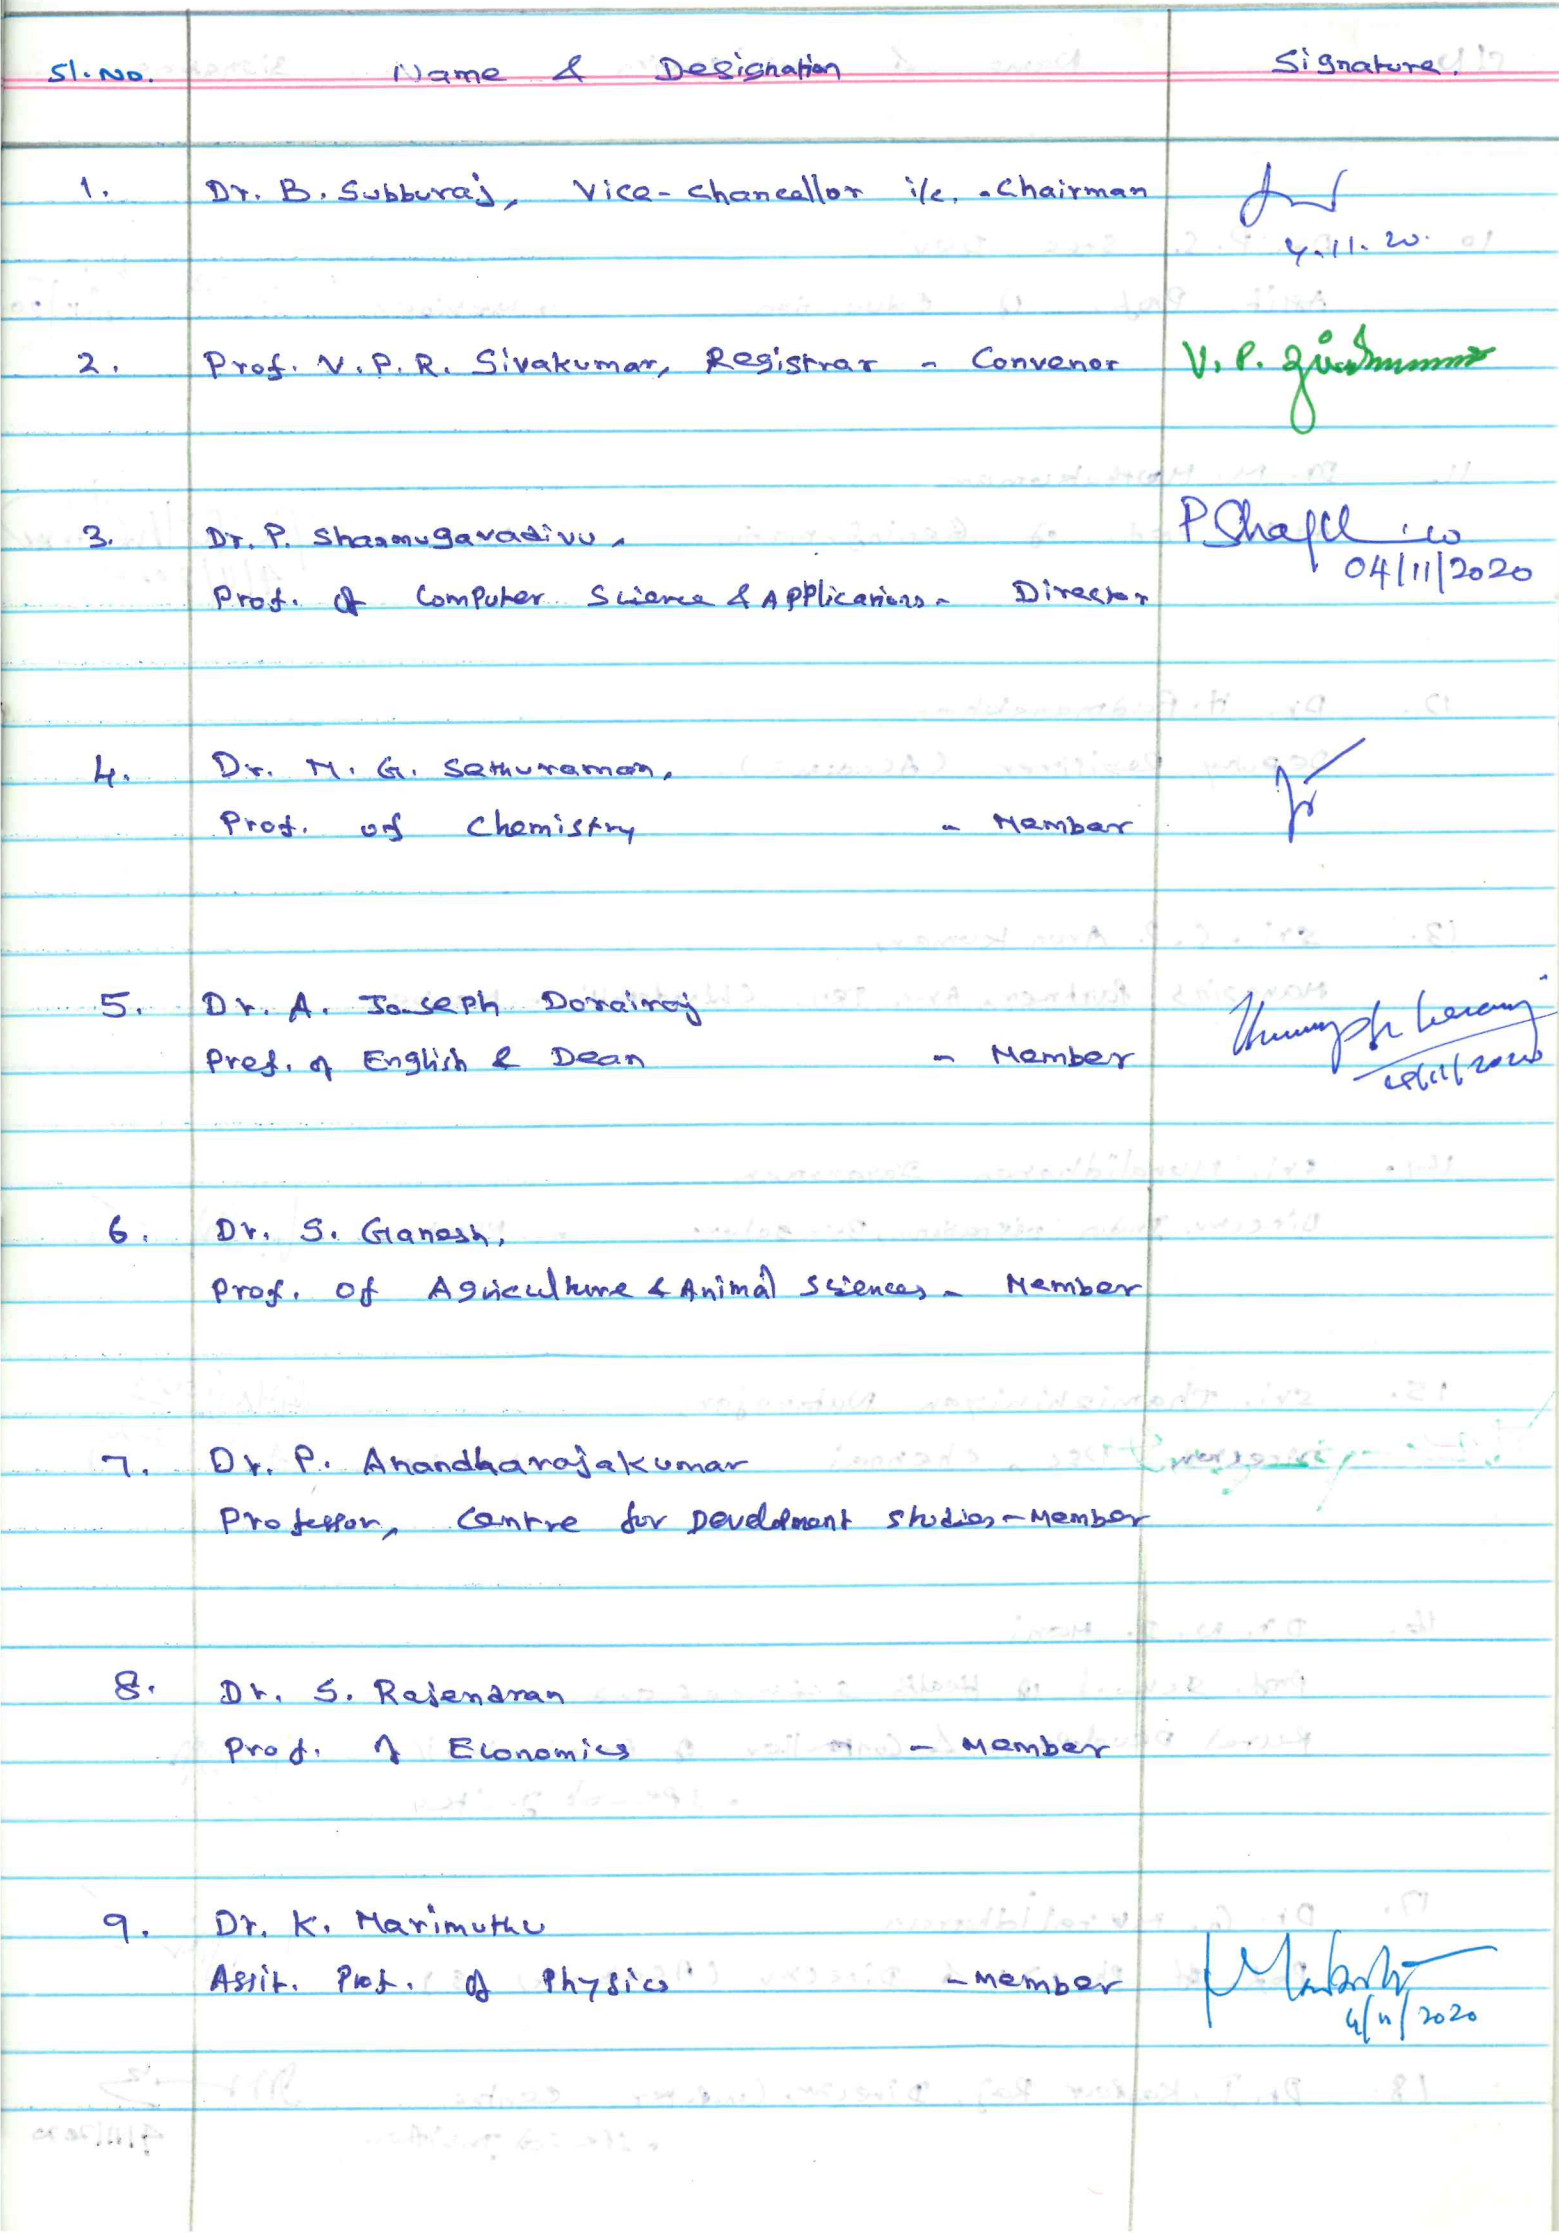 Sl. No. Name & Designation Signature.
1. Dr. B. Subburaj, Vice-chancellor i/c. - Chairman
4.11.20.
2. Prof. V. P. R. Sivakumar, Registrar - Convenor V. P.
3. Dr. P. Shanmugavadivu,
04/11/2020
Prof. of Computer Science & Applications - Director
4. Dr. M. G. Sethuraman,
Prof. of Chemistry - Member
5. Dr. A. Joseph Dorairaj
Prof. of English & Dean - Member
6. Dr. S. Ganesh,
Prof. of Agriculture & Animal Sciences - Member
7. Dr. P. Anandharajakumar
Professor, Centre for Develdpment Studies - Member
8. Dr. S. Rajendran
Prof. of Economics - Member
9. Dr. K. Marimuthu
Assit. Prof. of Physics - Member
4/11/2020